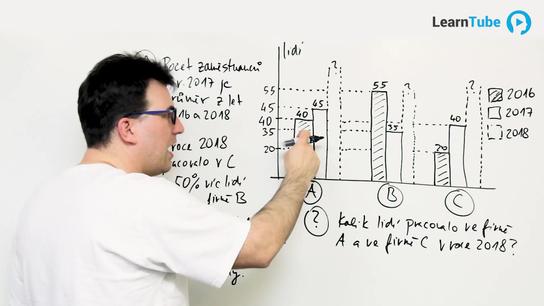 LearnTube
lidí
Počet zaměstnanců
r. 2017 je
průměr z let
2016 a 2018
roce 2018
pracovalo v C
50% víc lidí
firmě B
55
45
40
35
20
40
45
?
55
35
?
20
40
?
2016
2017
2018
A
B
C
?
Kolik lidí pracovalo ve firmě
A a ve firmě C v roce 2018?